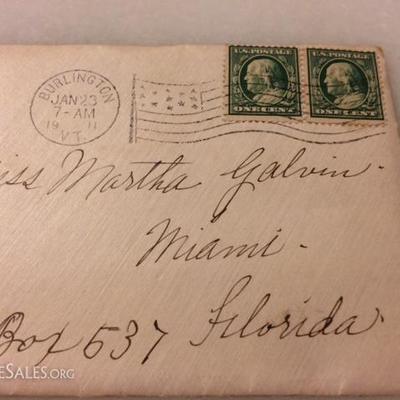 BURLINGTON
JAN 23
7-AM
1911
VT.
U.S. POSTAGE
ONE CENT
U.S. POSTAGE
ONE CENT
iss Martha Galvin.
Miami.
Box 537 Florida.
eSales.org